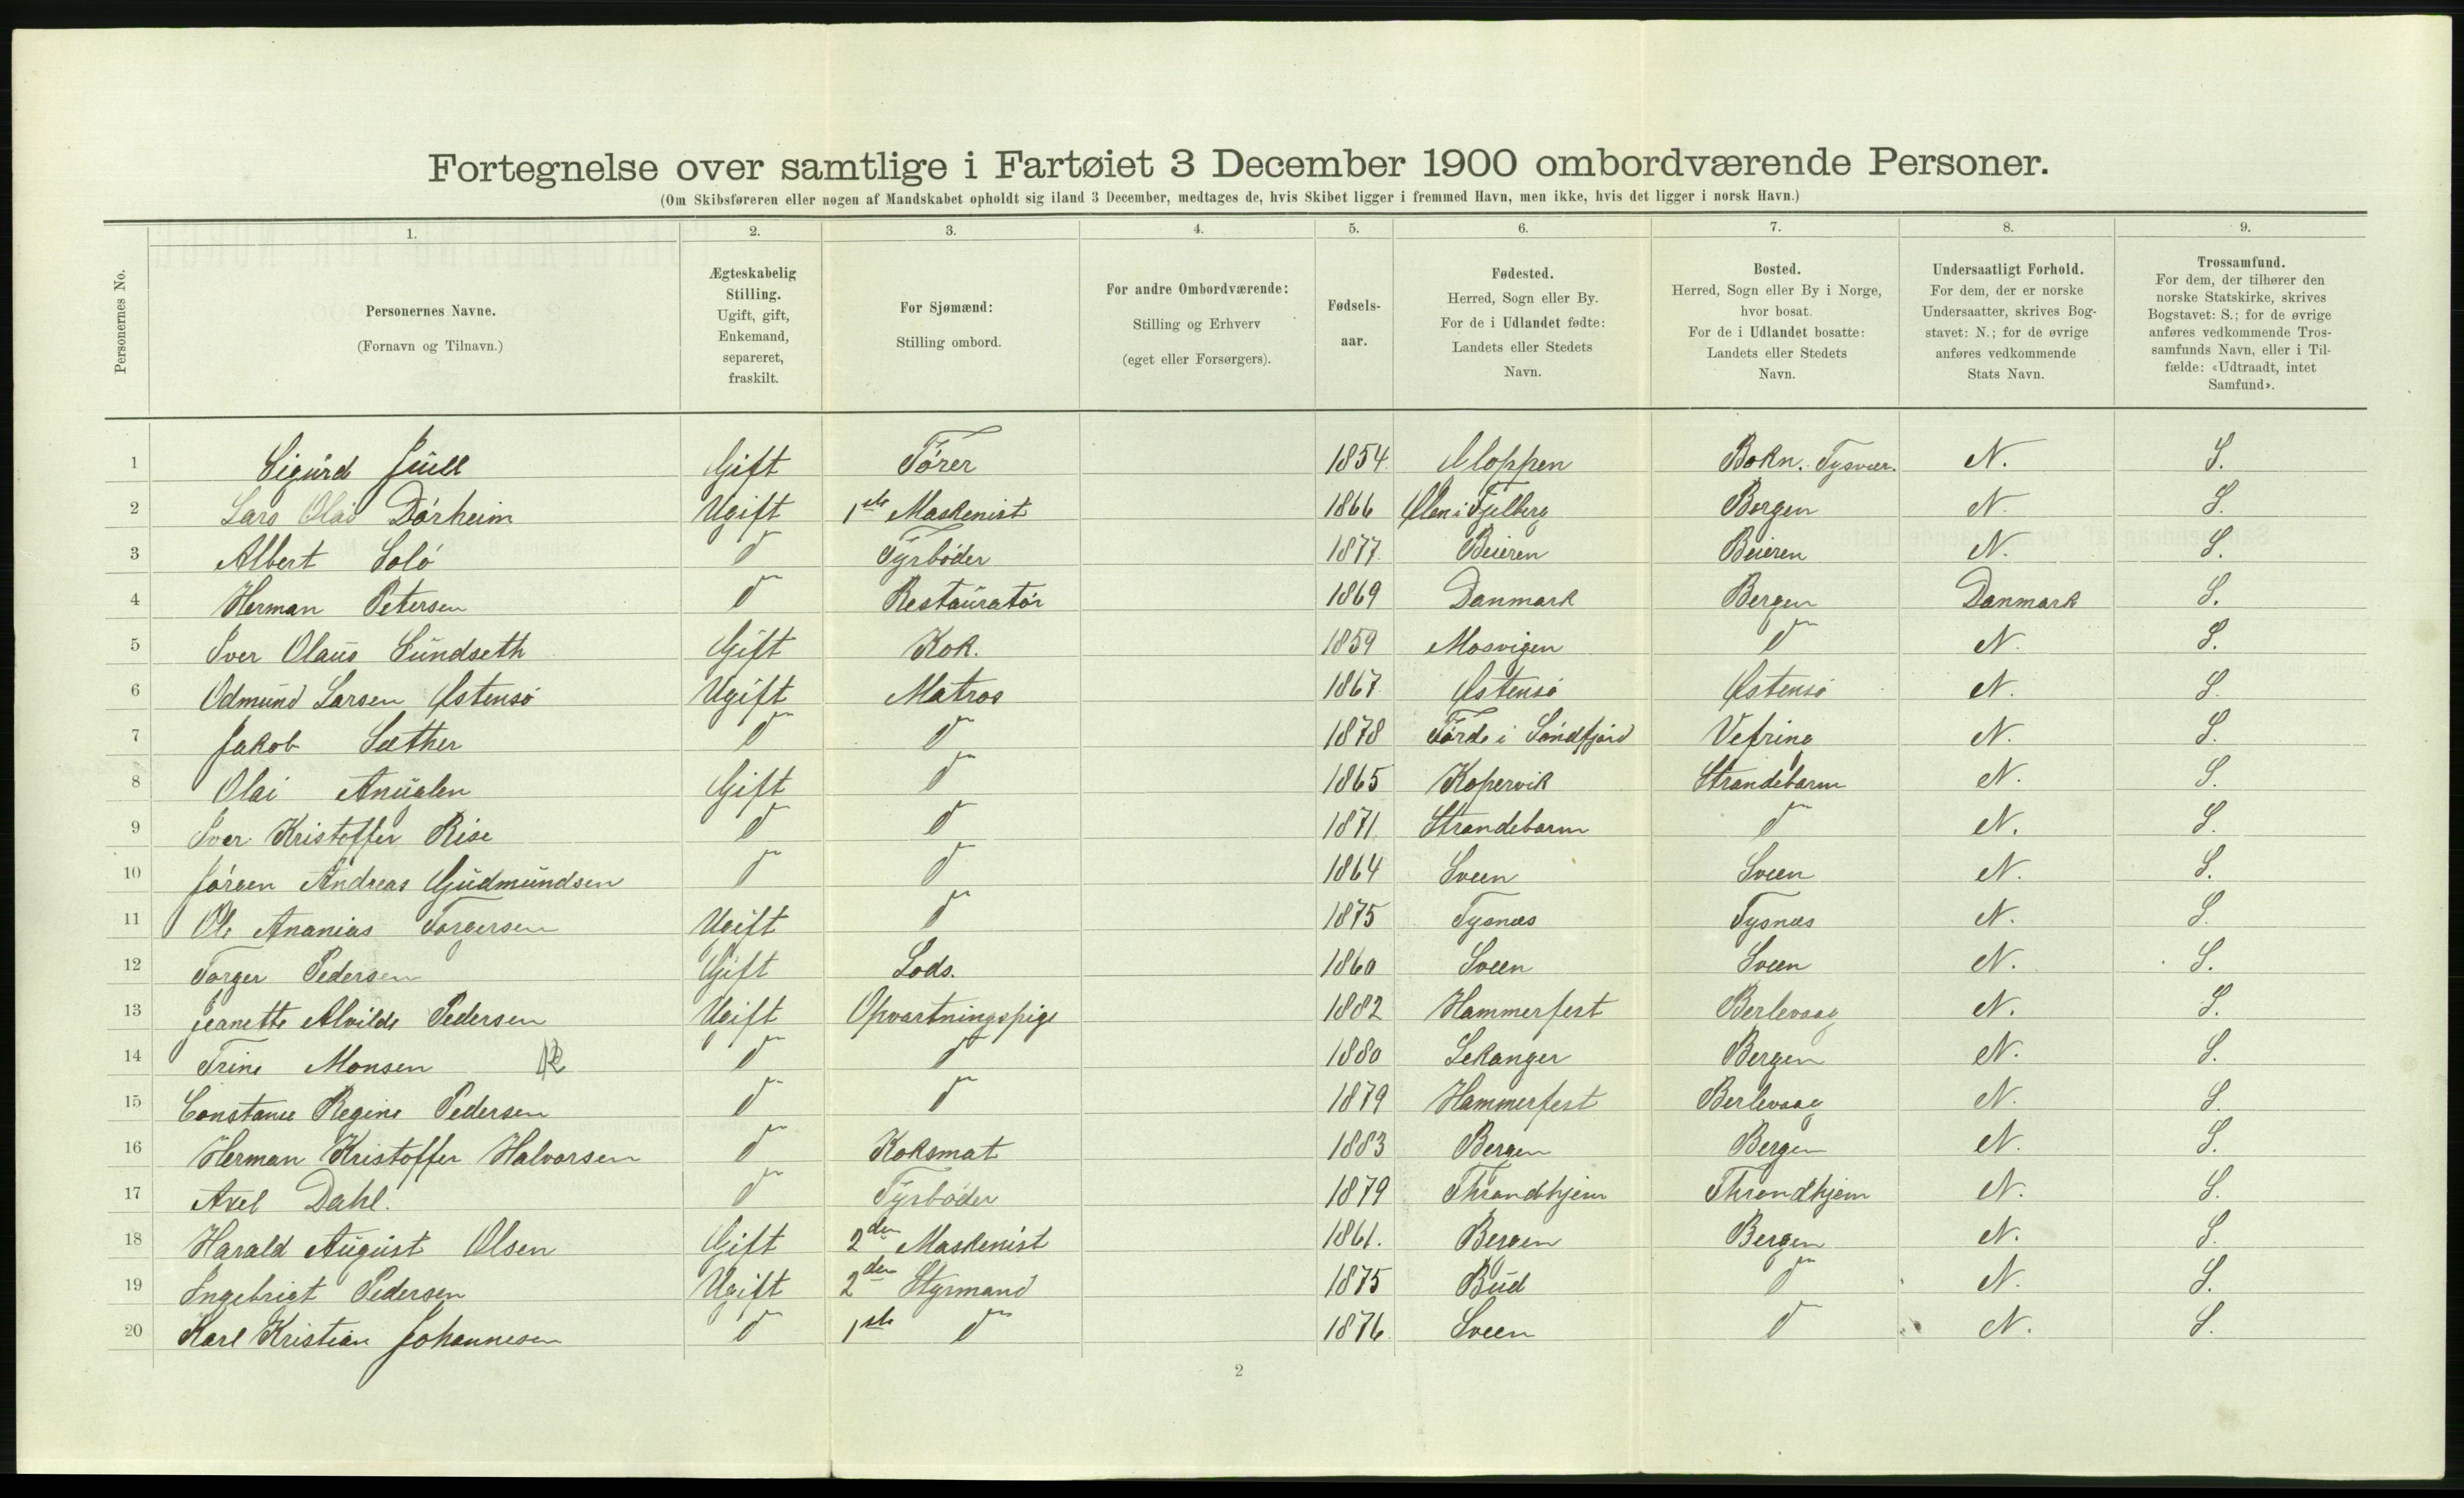 Fortegnelse over samtlige i Fartøiet 3 December 1900 ombordværende Personer.
(Om Skibsføreren eller nogen af Mandskabet opholdt sig iland 3 December, medtages de, hvis Skibet ligger i fremmed Havn, men ikke, hvis det ligger i norsk Havn.)
Personernes No.
1. 2. 3. 4. 5. 6. 7. 8. 9.
Personernes Navne.
(Fornavn og Tilnavn.)
Ægteskabelig
Stilling.
Ugift, gift,
Enkemand,
separeret,
fraskilt.
For Sjømænd:
Stilling ombord.
For andre Ombordværende:
Stilling og Erhverv
(eget eller Forsørgers).
Fødsels-
aar.
Fødested.
Herred, Sogn eller By.
For de i Udlandet fødte:
Landets eller Stedets
Navn.
Bosted.
Herred, Sogn eller By i Norge,
hvor bosat.
For de i Udlandet bosatte:
Landets eller Stedets
Navn.
Undersaatligt Forhold.
For dem, der er norske
Undersaatter, skrives Bog-
stavet: N.; for de øvrige
anføres vedkommende
Stats Navn.
Trossamfund.
For dem, der tilhører den
norske Statskirke, skrives
Bogstavet: S.; for de øvrige
anføres vedkommende Tros-
samfunds Navn, eller i Til-
fælde: «Udtraadt, intet
Samfund».
1 Sigurd Juell Gift Fører 1854 Gloppen Bokn. Tysvær. N. S.
2 Lars Olai Dørheim Ugift 1ste Maskenist 1866 Ølen i Fjelberg Bergen N. S.
3 Albert Solö d Fyrbøder 1877. Beieren Beieren N. S.
4 Herman Petersen d Restauratør 1869 Danmark Bergen Danmark S.
5 Iver Olaus Sundseth Gift Kok. 1859 Mosvigen d N. S.
6 Odmund Larsen Østensö Ugift Matros 1867 Østensö Østensö N. S.
7 Jakob Sæther d d 1878 Førde i Søndfjord Vefring N. S.
8 Olai Gift d 1865 Kopervik Strandebarm N. S.
9 Iver Kristoffer Rise d d 1871 Strandebarm d N. S.
10 Jörgen Andreas Gudmundsen d d 1864 Sveen Sveen N. S.
11 Ole Ananias Torgersen Ugift d 1875 Tysnæs Tysnæs N. S.
12 Torger Pedersen Gift Lods. 1860 Sveen Sveen N. S.
13 Jeanette Alvilde Pedersen Ugift Opvartningspige 1882 Hammerfest Berlevaag N. S.
14 Trine Monsen d d 1880 Lekanger Bergen N. S.
15 Constance Regine Pedersen d d 1879 Hammerfest Berlevaag N. S.
16 Herman Kristoffer Halvorsen d Koksmat 1883 Bergen Bergen N. S.
17 Axel Dahl. d Fyrbøder 1879 Throndhjem Throndhjem N. S.
18 Harald August Olsen Gift 2den Maskenist 1861. Bergen Bergen N. S.
19 Ingebrigt Pedersen Ugift 2den Styrmand 1875 Bud d N. S.
20 Karl Kristian Johannesen d 1ste d 1876 Sveen d N. S.
2